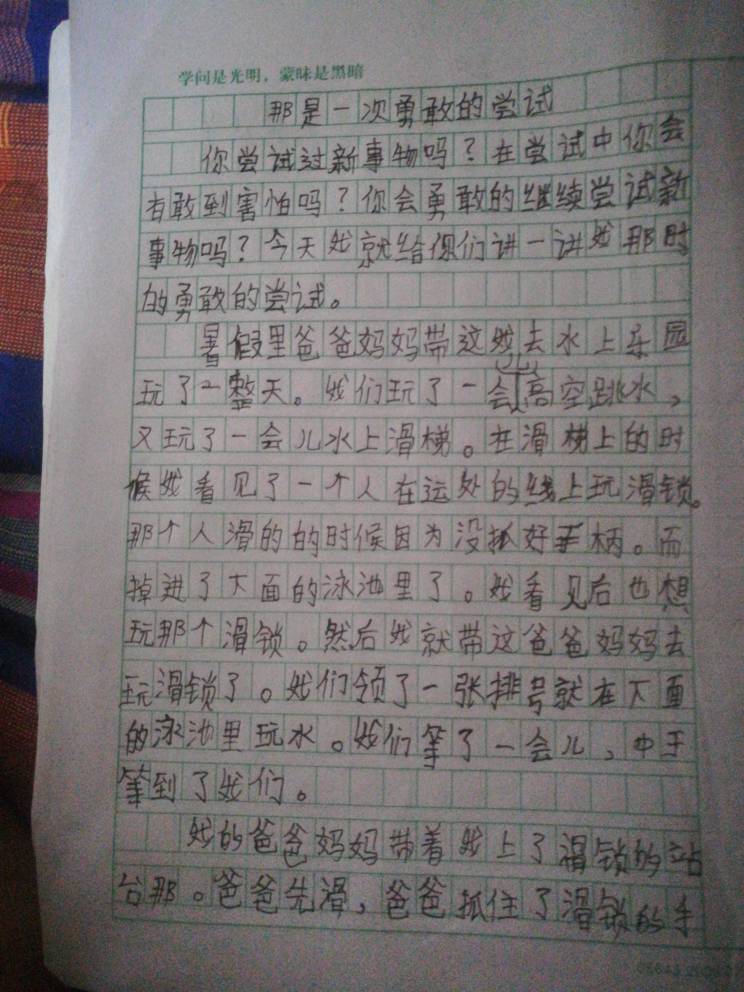 学问是光明，蒙昧是黑暗
那是一次勇敢的尝试
你尝试过新事物吗？在尝试中你会
有敢到害怕吗？你会勇敢的继续尝试新
事物吗？今天我就给你们讲一讲我那时
的勇敢的尝试。
暑假里爸爸妈妈带这我去水上乐园
玩了一整天。我们玩了一会儿高空跳水，
又玩了一会儿水上滑梯。在滑梯上的时
候我看见了一个人在运处的线上玩滑锁。
那个人滑的的时候因为没抓好手柄。而
掉进了下面的泳池里了。我看见后也想
玩那个滑锁。然后我就带这爸爸妈妈去
玩滑锁了。我们领了一张排号就在下面
的泳池里玩水。我们等了一会儿，中于
等到了我们。
我的爸爸妈妈带着我上了滑锁的站
台那。爸爸先滑，爸爸抓住了滑锁的手